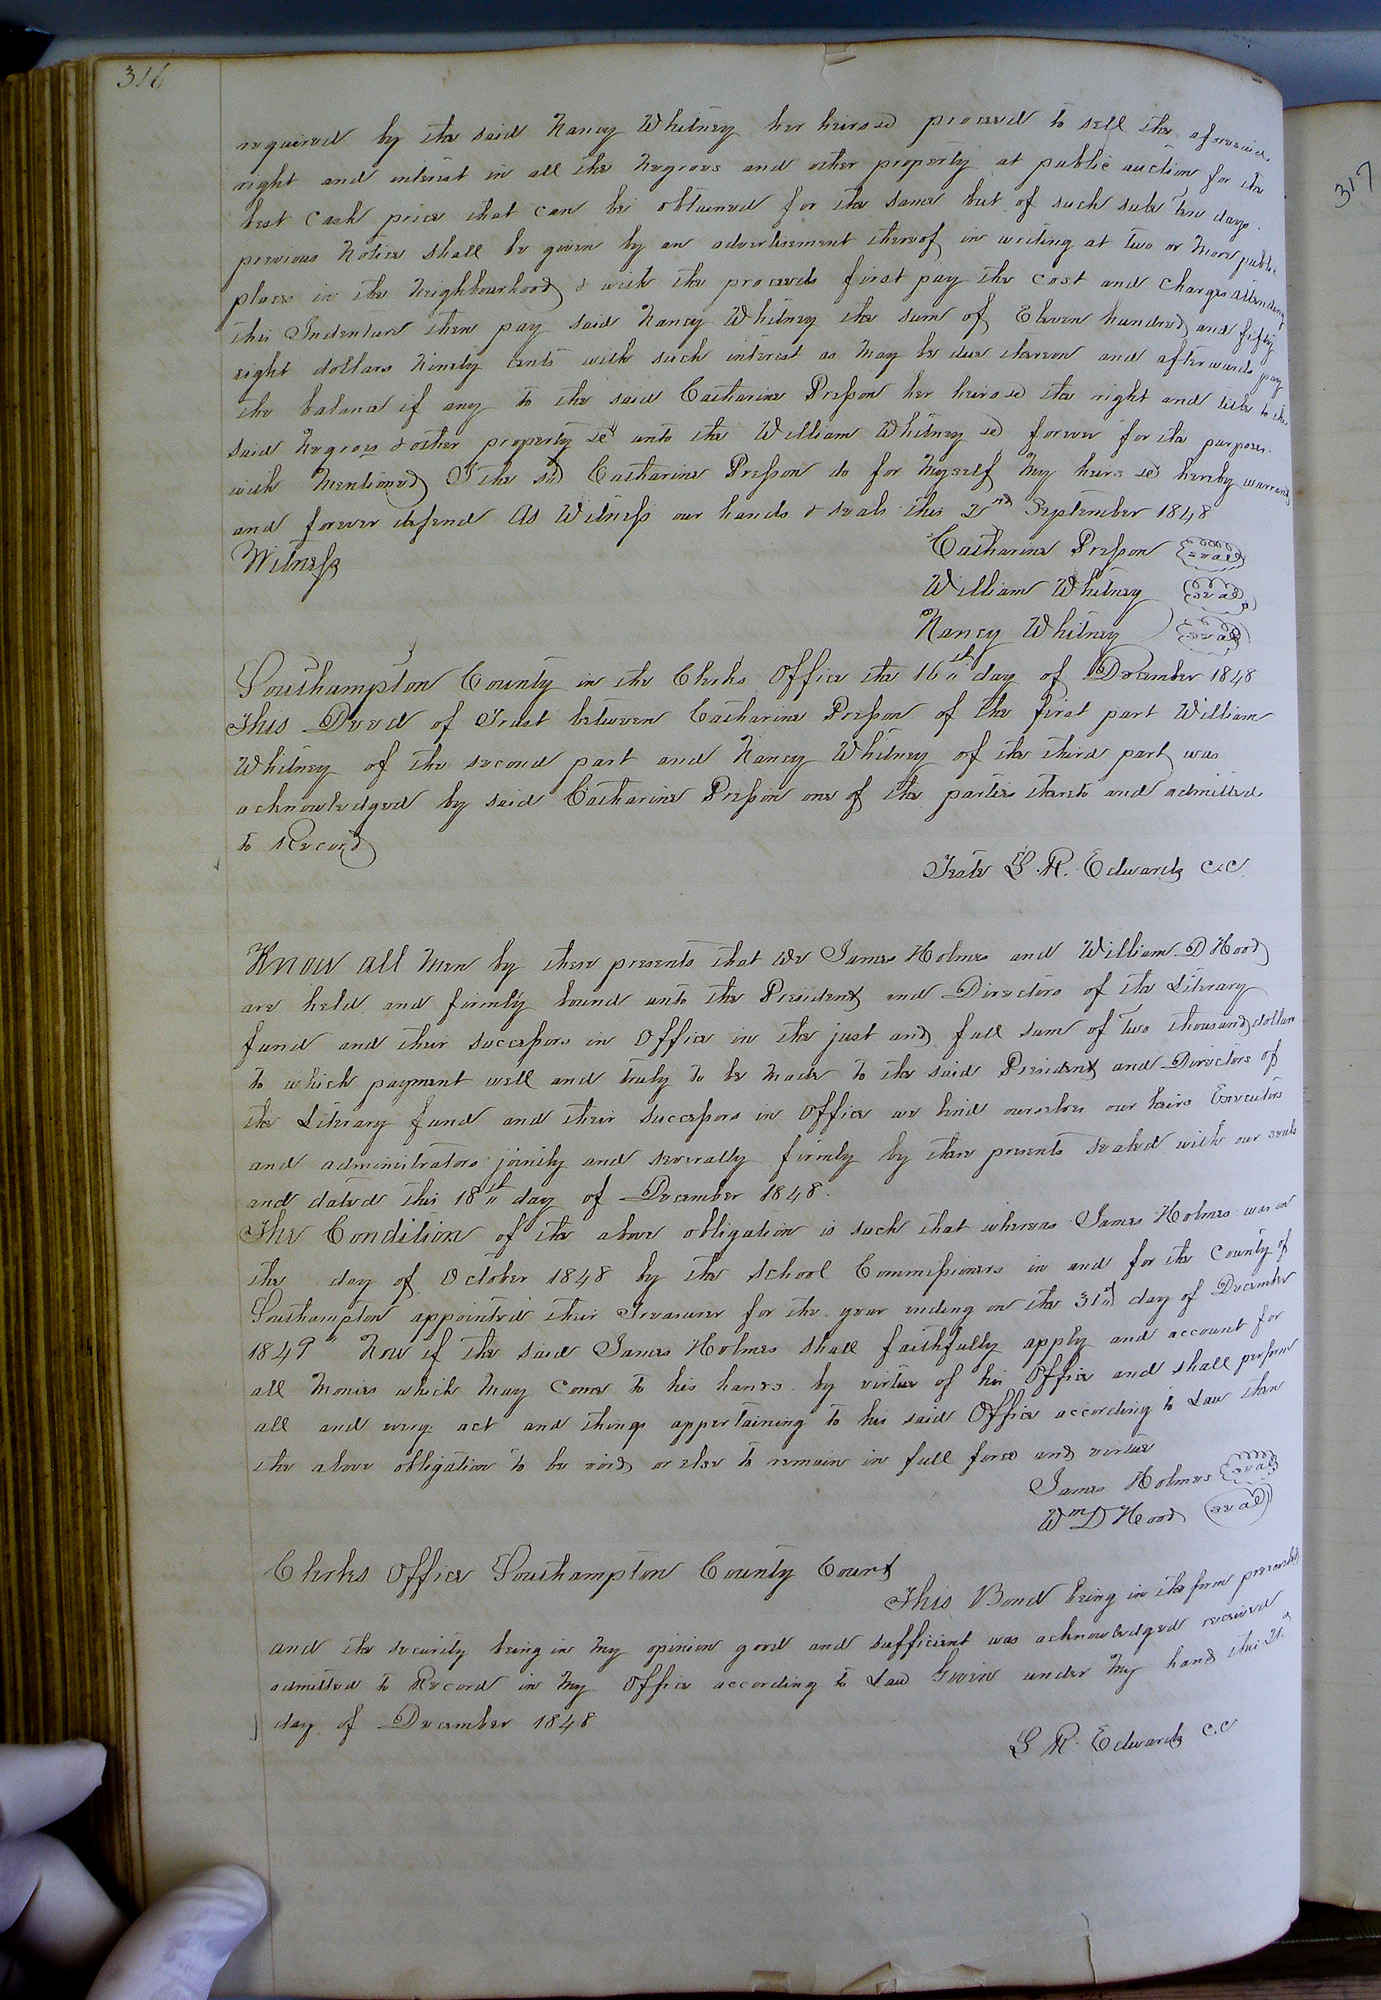 316
required by the said Nancy Whitney her heirs &c proceed to sell the aforesaid
right and interest in all the Negroes and other property at public auction for the
best Cash price that can be obtained for the same but of such sale ten days
previous Notice shall be given by an advertisement thereof in writing at two or more public
places in the Neighbourhood & with the proceeds first pay the cost and charges attending
this Indenture then pay said Nancy Whitney the sum of Eleven hundred and fifty
eight dollars Ninety cents with such interest as may be due thereon and afterwards pay
the balance if any to the said Catharine Presson her heirs &c the right and title to the
said Negroes & other property &c unto the William Whitney &c forever for the purposes
with Mentioned I the sd Catharine Presson do for Myself My heirs &c hereby warrant
and forever defend As Witness our hands & seals this 2nd September 1848
Witness
Catharine Presson seal
William Whitney seal
Nancy Whitney seal
Southampton County in the Clerks Office the 16th day of December 1848
This Deed of Trust between Catharine Presson of the first part William
Whitney of the second part and Nancy Whitney of the third part was
acknowledged by said Catharine Presson one of the parties thereto and admitted
to Record
Teste L. R. Edwards C.C.
Know all Men by these presents that We James Holmes and William D Hood
are held and firmly bound unto the President and Directors of the Literary
fund and their successors in Office in the just and full sum of two thousand dollars
to which payment well and truly to be made to the said President and Directors of
the Literary fund and their successors in Office we bind ourselves our heirs Executors
and administrators jointly and severally firmly by these presents sealed with our seals
and dated this 18th day of December 1848.
The Condition of the above obligation is such that whereas James Holmes was on
the day of October 1848 by the School Commissioners in and for the County of
Southampton appointed their Treasurer for the year ending on the 31st day of December
1849 Now if the said James Holmes shall faithfully apply and account for
all Monies which May Come to his hands by virtue of his Office and shall perform
all and every act and things appertaining to his said Office according to Law then
the above obligation to be void or else to remain in full force and virtue
James Holmes seal
Wm D Hood seal
Clerks Office Southampton County Court
This Bond being in the form prescribed
and the security being in My opinion good and sufficient was acknowledged received
admitted to Record in My Office according to Law Given under My hand this
day of December 1848
L R. Edwards C.C
317